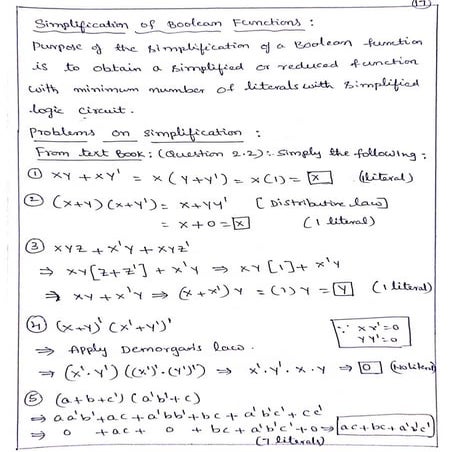 (17)
Simplification of Boolean Functions :
Purpose of the simplification of a Boolean function
is to obtain a simplified or reduced function
with minimum number of literals with simplified
logic circuit.
Problems on simplification :
From text Book : (Question 2.2) :- Simply the following :
① xy + xy' = x(y+y') = x(1) = x (1literal)
② (x+y)(x+y') = x+yy' [Distributive law]
= x+0 = x (1 literal)
③ xyz + x'y + xyz'
⇒ xy[z+z'] + x'y ⇒ xy[1] + x'y
⇒ xy + x'y ⇒ (x+x')y = (1)y = y (1 literal)
④ (x+y)' (x'+y')' ∵ xx'=0
yy'=0
⇒ Apply Demorgan's law.
⇒ (x'.y') ((x')'.(y')') ⇒ x'.y'.x.y ⇒ 0 (No literal)
⑤ (a+b+c') (a'b'+c)
⇒ aa'b' + ac + a'bb' + bc + a'b'c' + cc'
⇒ 0 + ac + 0 + bc + a'b'c' + 0 ⇒ ac+bc+a'b'c'
(7 literals)